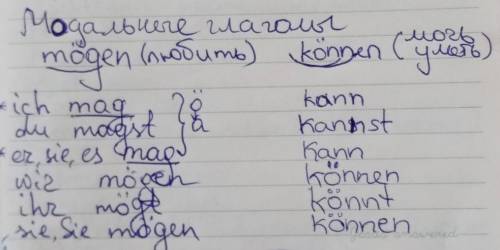 Модальные глаголы
mögen (любить) können (мочь уметь)
* ich mag } ö kann
du magst } a kannst
* er, sie, es mag kann
wir mögen können
ihr mögt könnt
sie, Sie mögen können